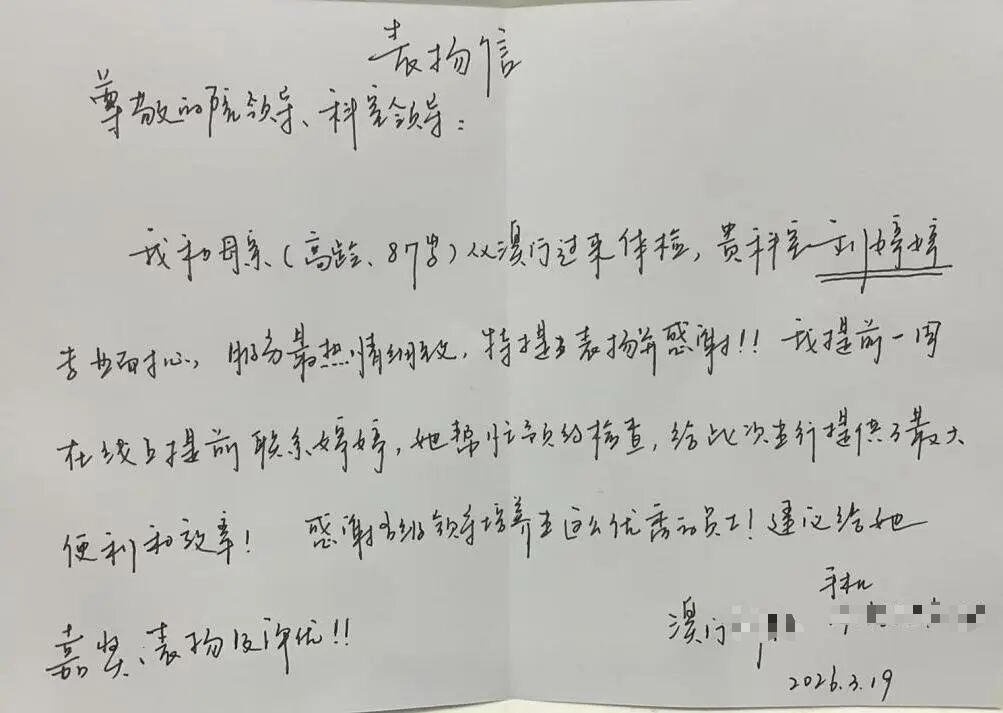 表扬信
尊敬的院领导、科室领导：
我和母亲(高龄、87岁)从澳门过来体检，贵科室刘婷婷
专业耐心，服务最热情细致，特提出表扬并感谢!! 我提前一周
在线上提前联系婷婷，她帮忙预约检查，给此次出行提供了最大
便利和效率! 感谢各级领导培养出这么优秀的员工! 建议给她
嘉奖、表扬及评优!!
手机
澳门
2026.3.19